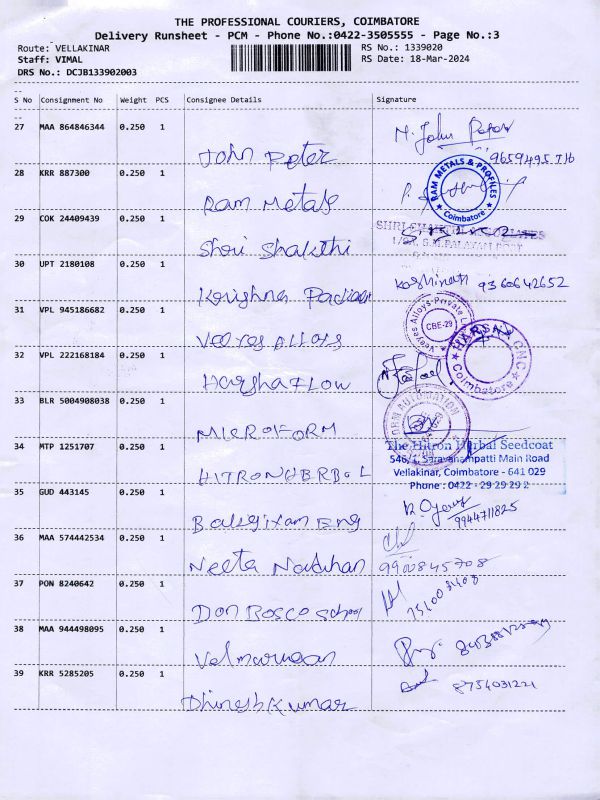 THE PROFESSIONAL COURIERS, COIMBATORE
Delivery Runsheet - PCM - Phone No.:0422-3505555 - Page No.:3
Route: VELLAKINAR
RS No.: 1339020
Staff: VIMAL
RS Date: 18-Mar-2024
DRS No.: DCJB133902003
S No Consignment No Weight PCS Consignee Details Signature
27 MAA 864846344 0.250 1 John Peter M. John Peter
28 KRR 887300 0.250 1 Ram Metals
RAM METALS & PROFILES
Coimbatore
29 COK 24409439 0.250 1 Shri Shakthi
30 UPT 2180108 0.250 1 Krishna Kashinath 9360642652
31 VPL 945186682 0.250 1 Veeyes Alloys
Veeyes Alloys Private
CBE-29
32 VPL 222168184 0.250 1 Harsha Flow
CNC
Coimbatore
33 BLR 5004908038 0.250 1 MICROFORM
AUTOMATION
34 MTP 1251707 0.250 1 HITRON HERBAL
The Hitron Herbal Seedcoat
546/1, Saravanampatti Main Road
Vellakinar, Coimbatore - 641 029
Phone : 0422 - 29 29 29 2
35 GUD 443145 0.250 1 Eng 9944711825
36 MAA 574442534 0.250 1 Neeta 9900845708
37 PON 8240642 0.250 1 Don Bosco School
38 MAA 944498095 0.250 1 Velmurugan
39 KRR 5285205 0.250 1 Dhinesh Kumar 8754031221